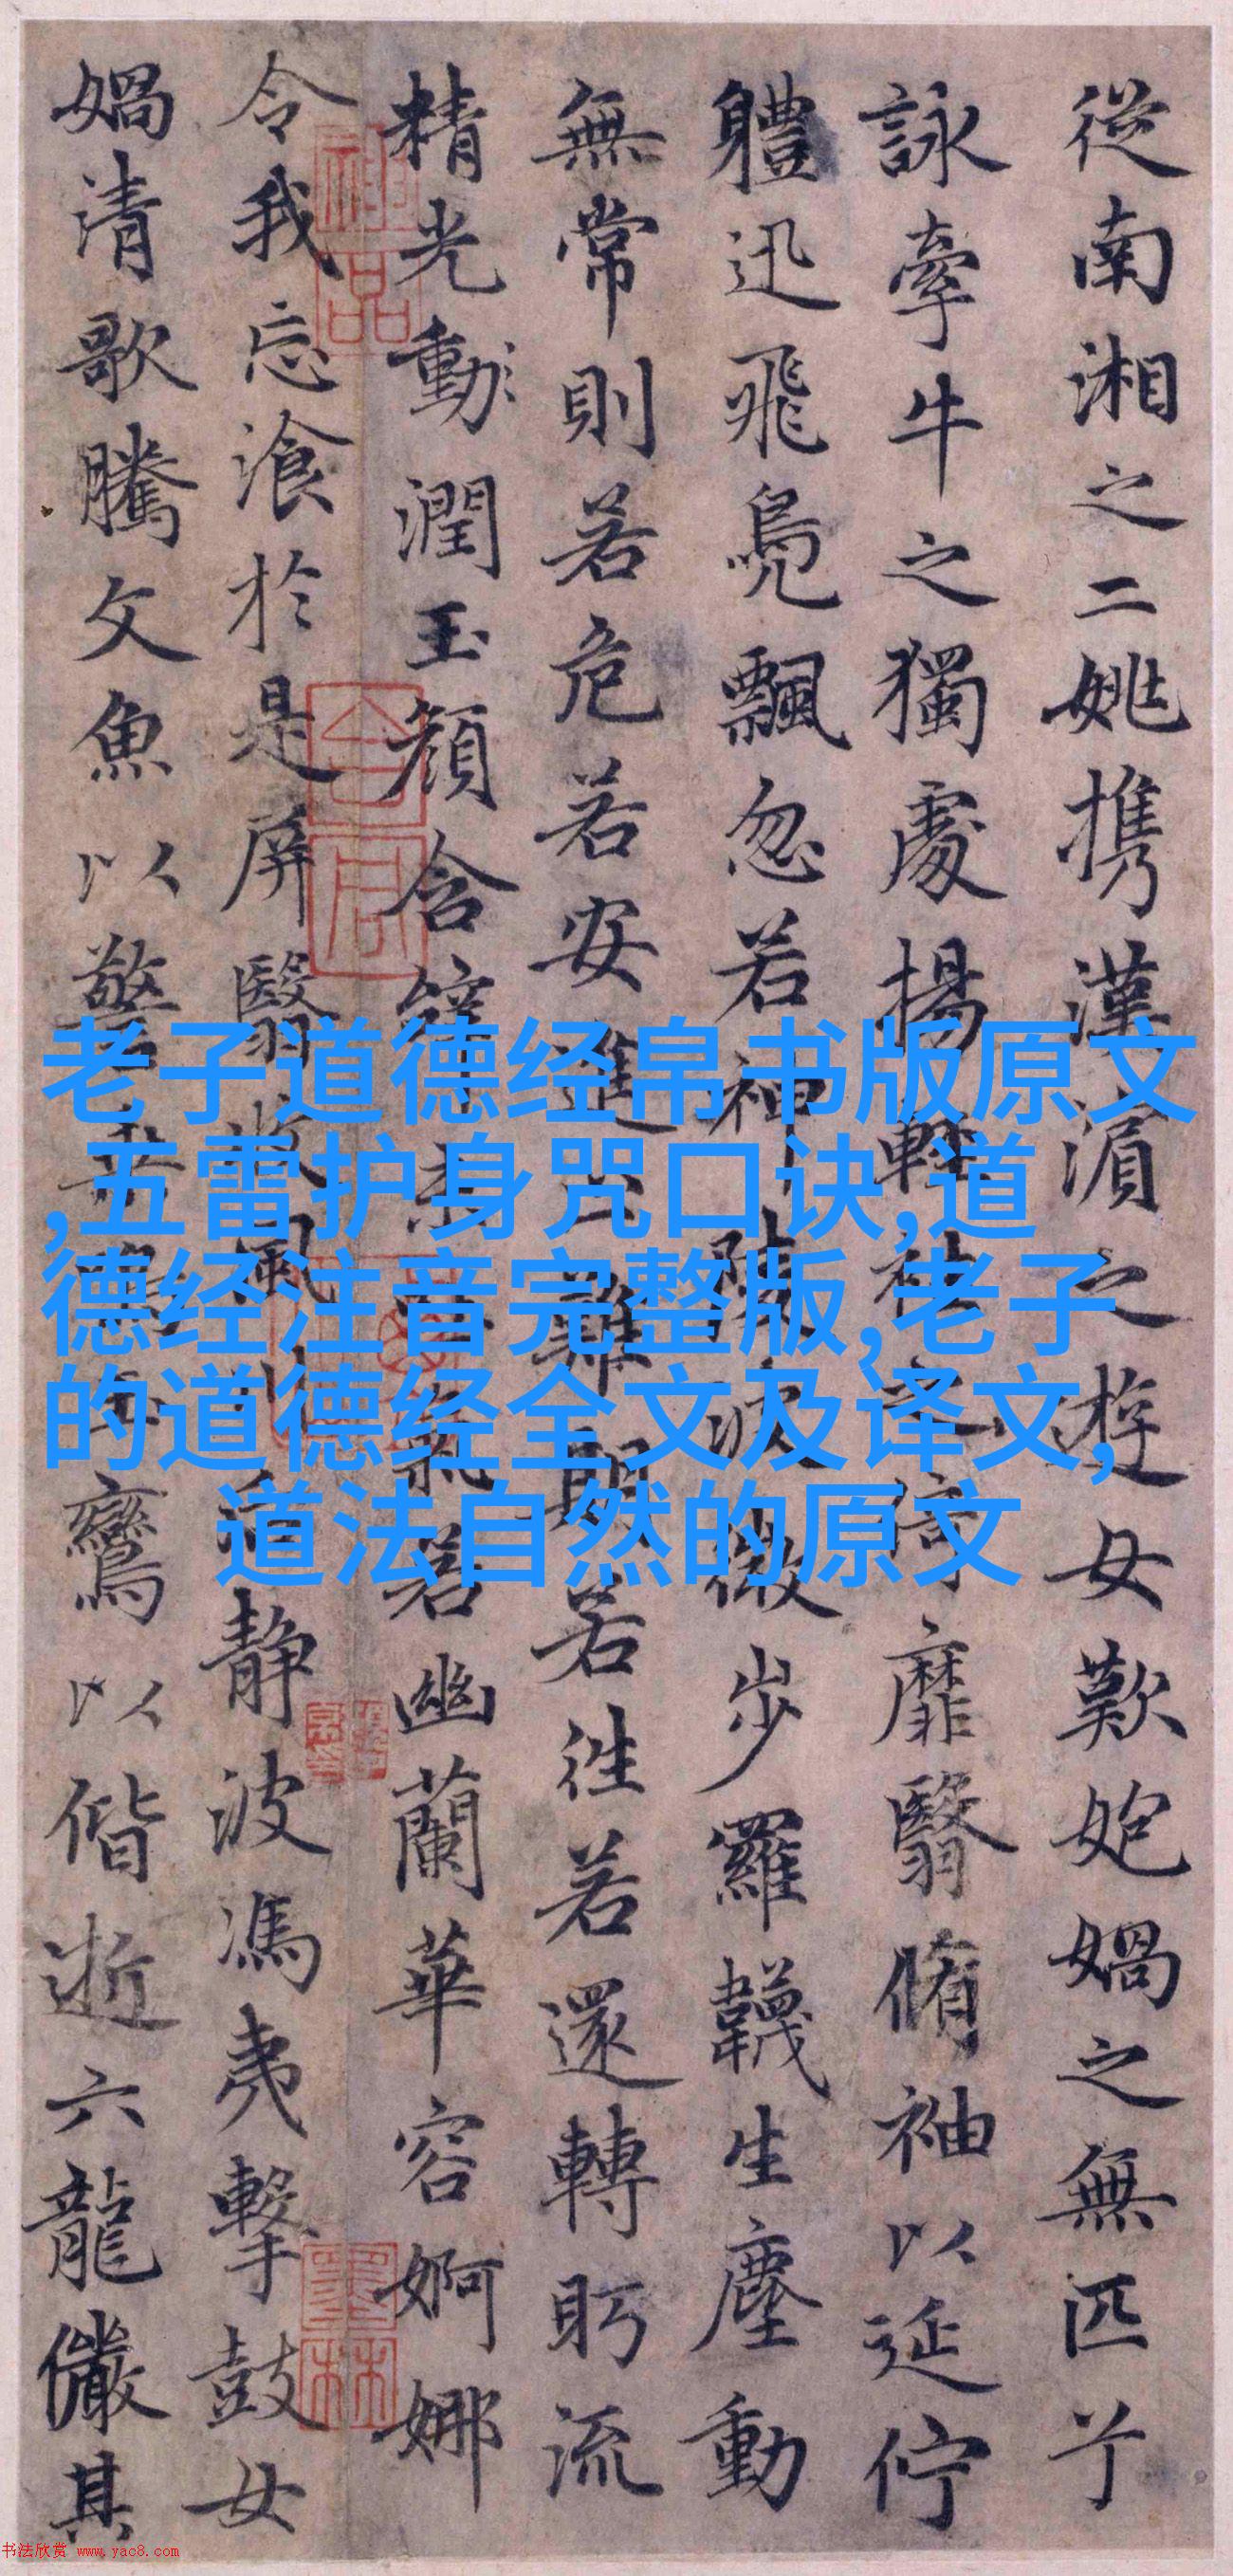 從南湘之二姚携漢之遊女歎媧之無匹兮
詠牽牛之獨處揚輕袿之倚靡翳脩袖以延佇
體迅飛鳧飄忽若神陵波微步羅韈生塵動
無常則若危若安進止難期若往若還轉眄流
精光動潤玉顏含辭未氣若幽蘭華容婀娜
令我忘飡於是屏翳收風川后静波馮夷擊鼓女
媧清歌騰文魚以警乘鳴玉鸞以偕逝六龍儼其
神品
墨林
老子道德经帛书版原文
,五雷护身咒口诀,道
德经注音完整版,老子
的道德经全文及译文,
道法自然的原文
书法欣赏 www.yac8.com